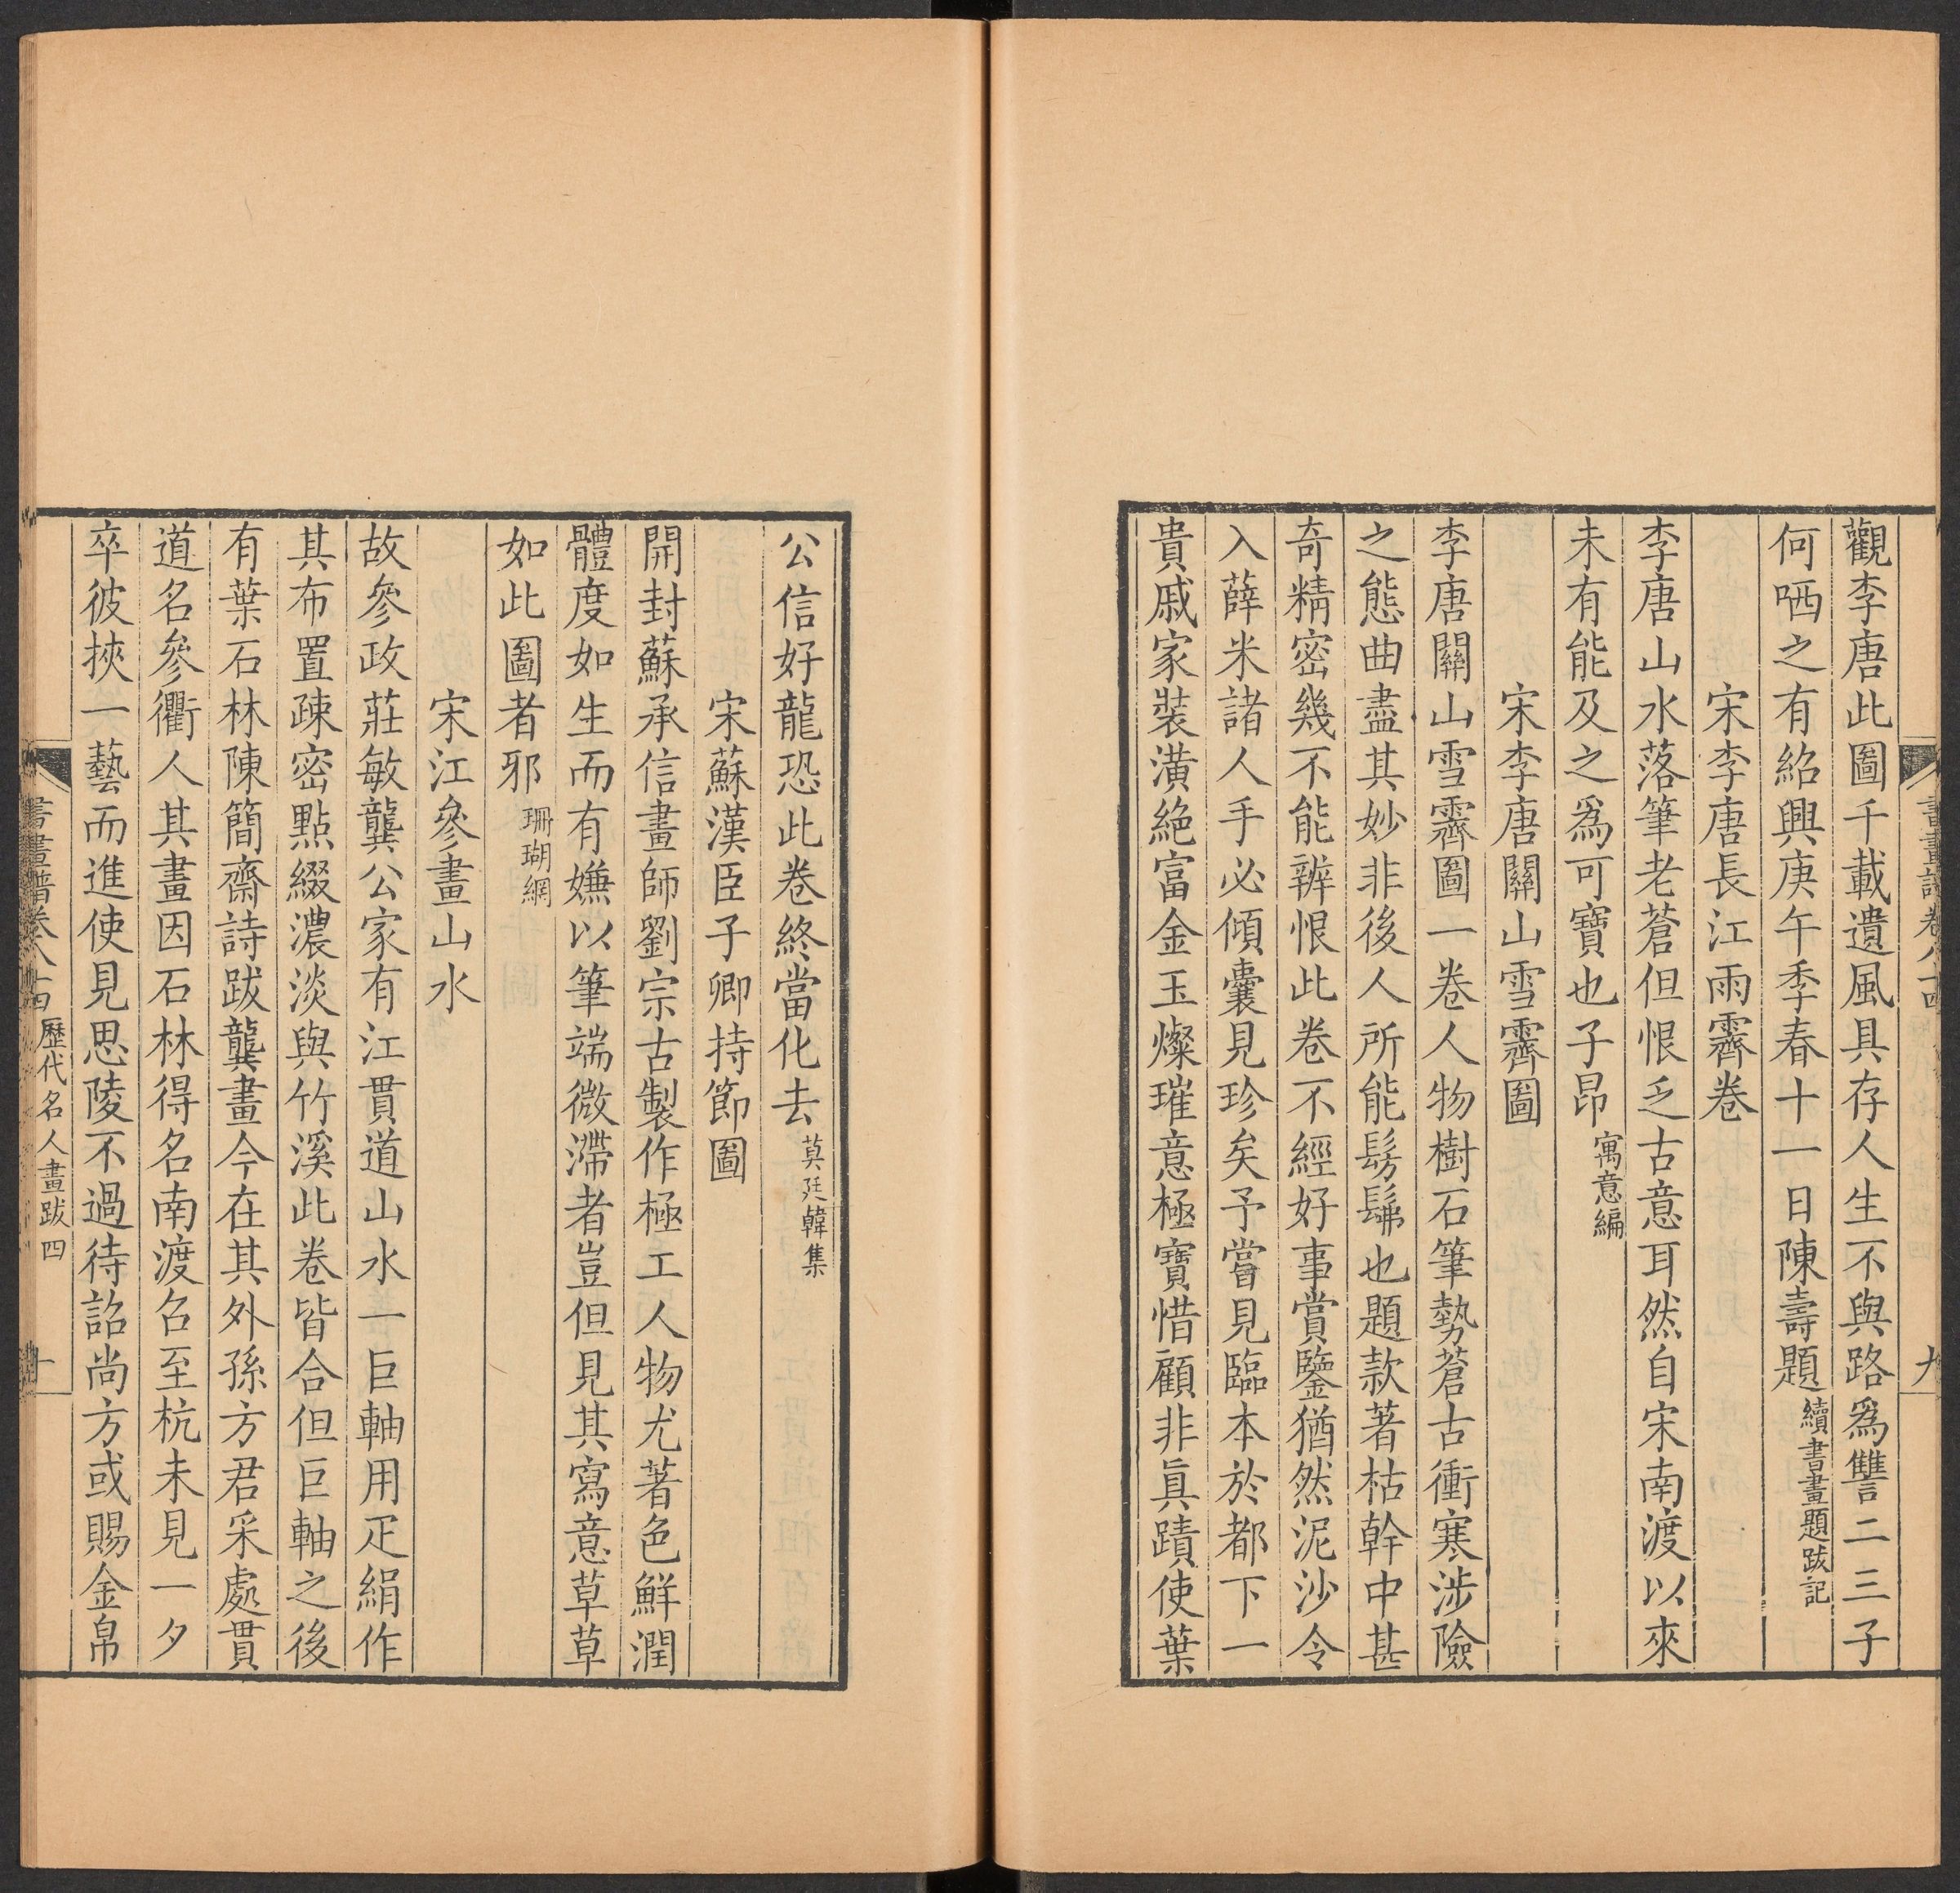 書畫譜卷八十四 九
觀李唐此圖千載遺風具存人生不與路爲讐二三子
何哂之有紹興庚午季春十一日陳壽題續書畫題跋記
宋李唐長江雨霽卷
李唐山水落筆老蒼但恨乏古意耳然自宋南渡以來
未有能及之爲可寶也子昂寓意編
宋李唐關山雪霽圖
李唐關山雪霽圖一卷人物樹石筆勢蒼古衝寒涉險
之態曲盡其妙非後人所能髣髴也題款著枯幹中甚
奇精密幾不能辨恨此卷不經好事賞鑒猶然泥沙令
入薛米諸人手必傾囊見珍矣予嘗見臨本於都下一
貴戚家裝潢絶富金玉燦璀意極寶惜顧非眞蹟使葉
公信好龍恐此卷終當化去莫廷韓集
宋蘇漢臣子卿持節圖
開封蘇承信畫師劉宗古製作極工人物尤著色鮮潤
體度如生而有嫌以筆端微滯者豈但見其寫意草草
如此圖者邪珊瑚網
宋江參畫山水
故參政莊敏龔公家有江貫道山水一巨軸用疋絹作
其布置疎密點綴濃淡與竹溪此卷皆合但巨軸之後
有葉石林陳簡齋詩跋龔畫今在其外孫方君采處貫
道名參衢人其畫因石林得名南渡召至杭未見一夕
卒彼挾一藝而進使見思陵不過待詔尚方或賜金帛
書畫譜卷八十四 歷代名人畫跋四 十